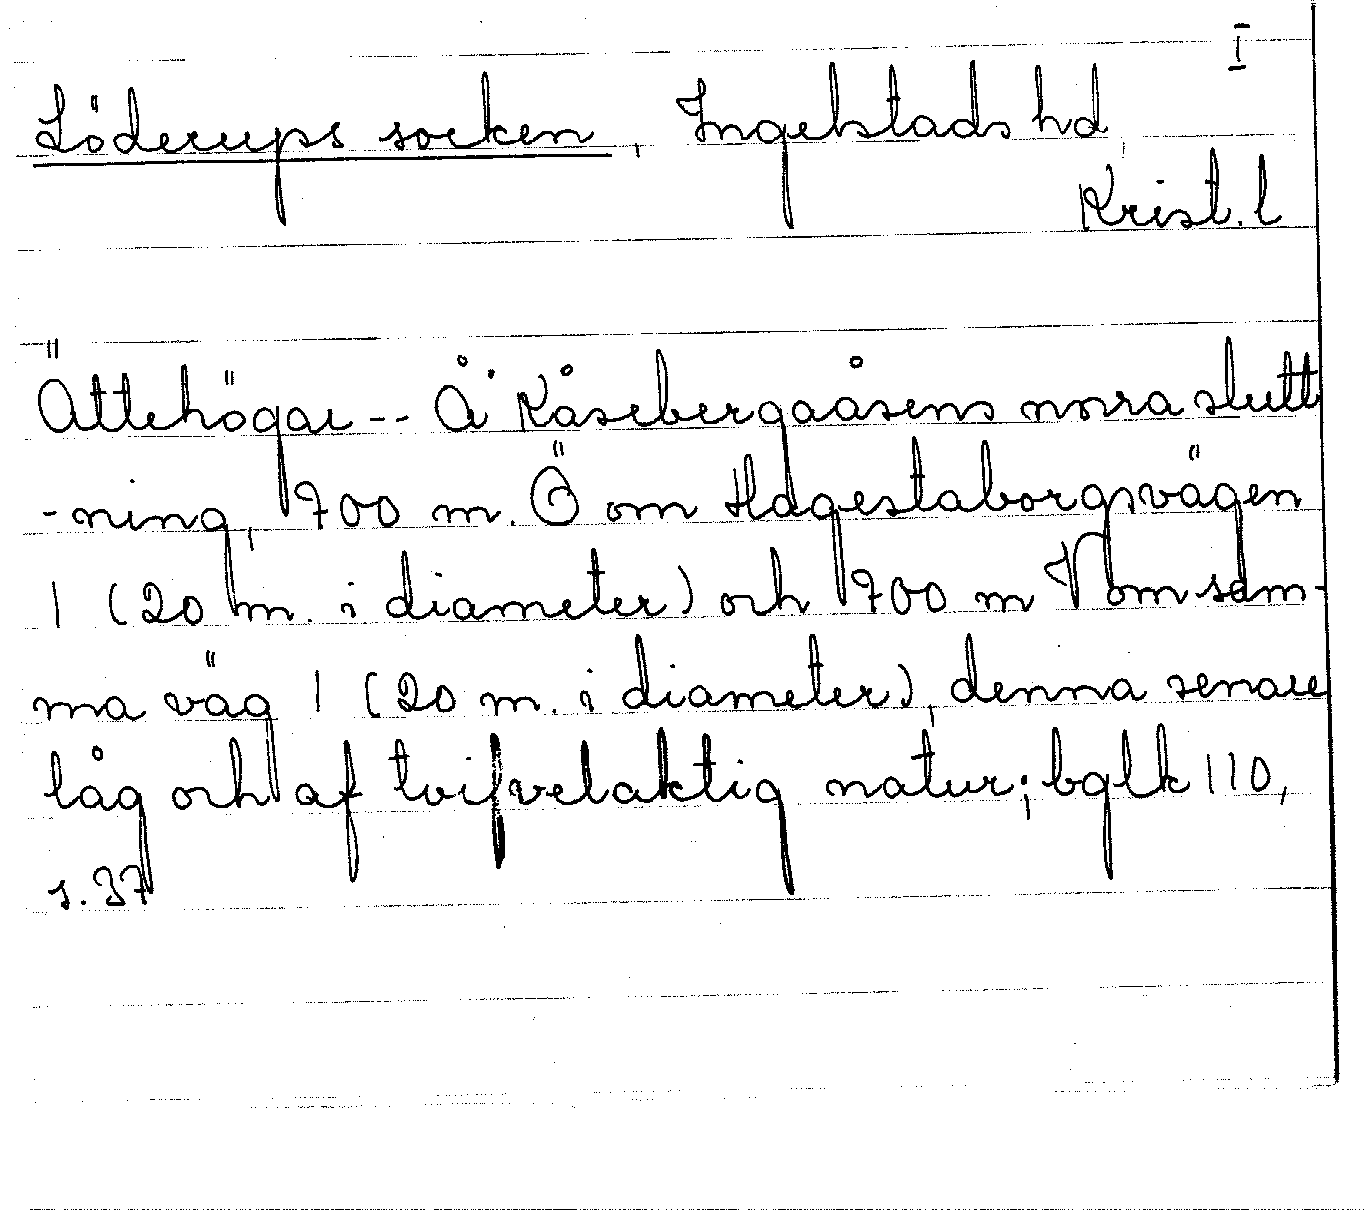 I
Löderups socken, Ingelstads hd,
Krist. l
Ättehögar -- Å Kåsebergaåsens norra slutt
-ning, 700 m. Ö om Hagestaborgsvägen
1 (20 m. i diameter) och 700 m V om sam-
ma väg 1 (20 m. i diameter), denna senare
låg och af tvifvelaktig natur; bglk 110,
s. 37